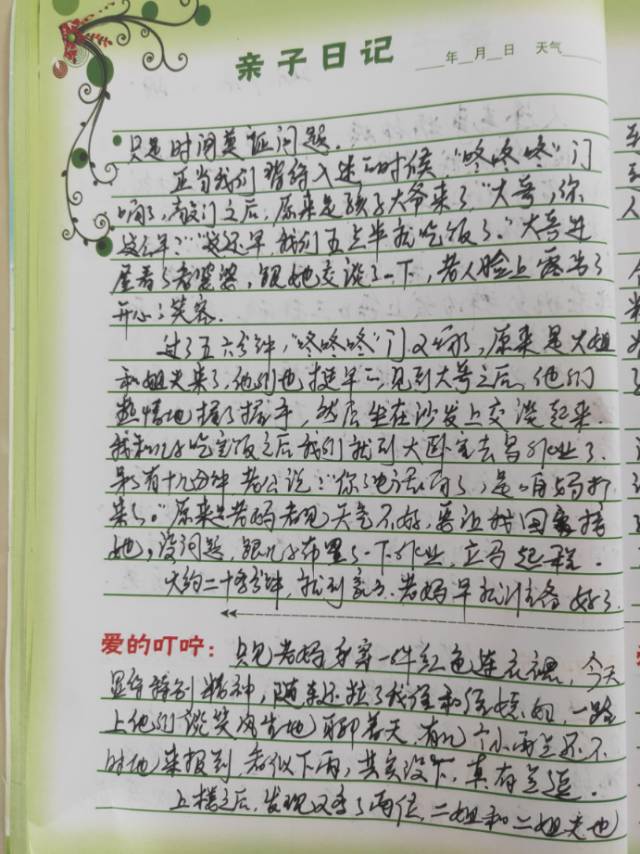 亲子日记 ____年__月__日 天气____
只是时间验证问题。
正当我们 入迷的时候,“咚咚咚”门
响了,敲门之后,原来是孩子大爷来了“大哥,你
这么早?”“这还早,我们五点半就吃饭了。”大哥进
屋看了老婆婆,跟她交谈了一下,老人脸上露出了
开心的笑容。
过了五六分钟,“咚咚咚”门又响了,原来是大姐
和姐夫来了,他们也挺早的,见到大哥之后,他们
热情地握了握手,然后坐在沙发上交谈起来。
我和儿子吃完饭之后我们就到大卧室去写作业了。
第了有十几分钟 老公说:“你电话响了,是咱妈打
来的。”原来是老妈看见天气不好,要让我回家接
她,没问题,跟儿子布置了一下作业,立马起程。
大约二十多分钟,就到家了。老妈早就准备好了。
爱的叮咛:只见老妈身穿一件红色连衣裙,今天
显得特别精神,随车还拉了我侄和侄媳妇,一路
上他们谈笑风生地聊着天,有几个小雨点还不
时地来报到 看似下雨,其实没下,真有意思。
上楼之后,发现又多了两位,二姐和二姐夫也